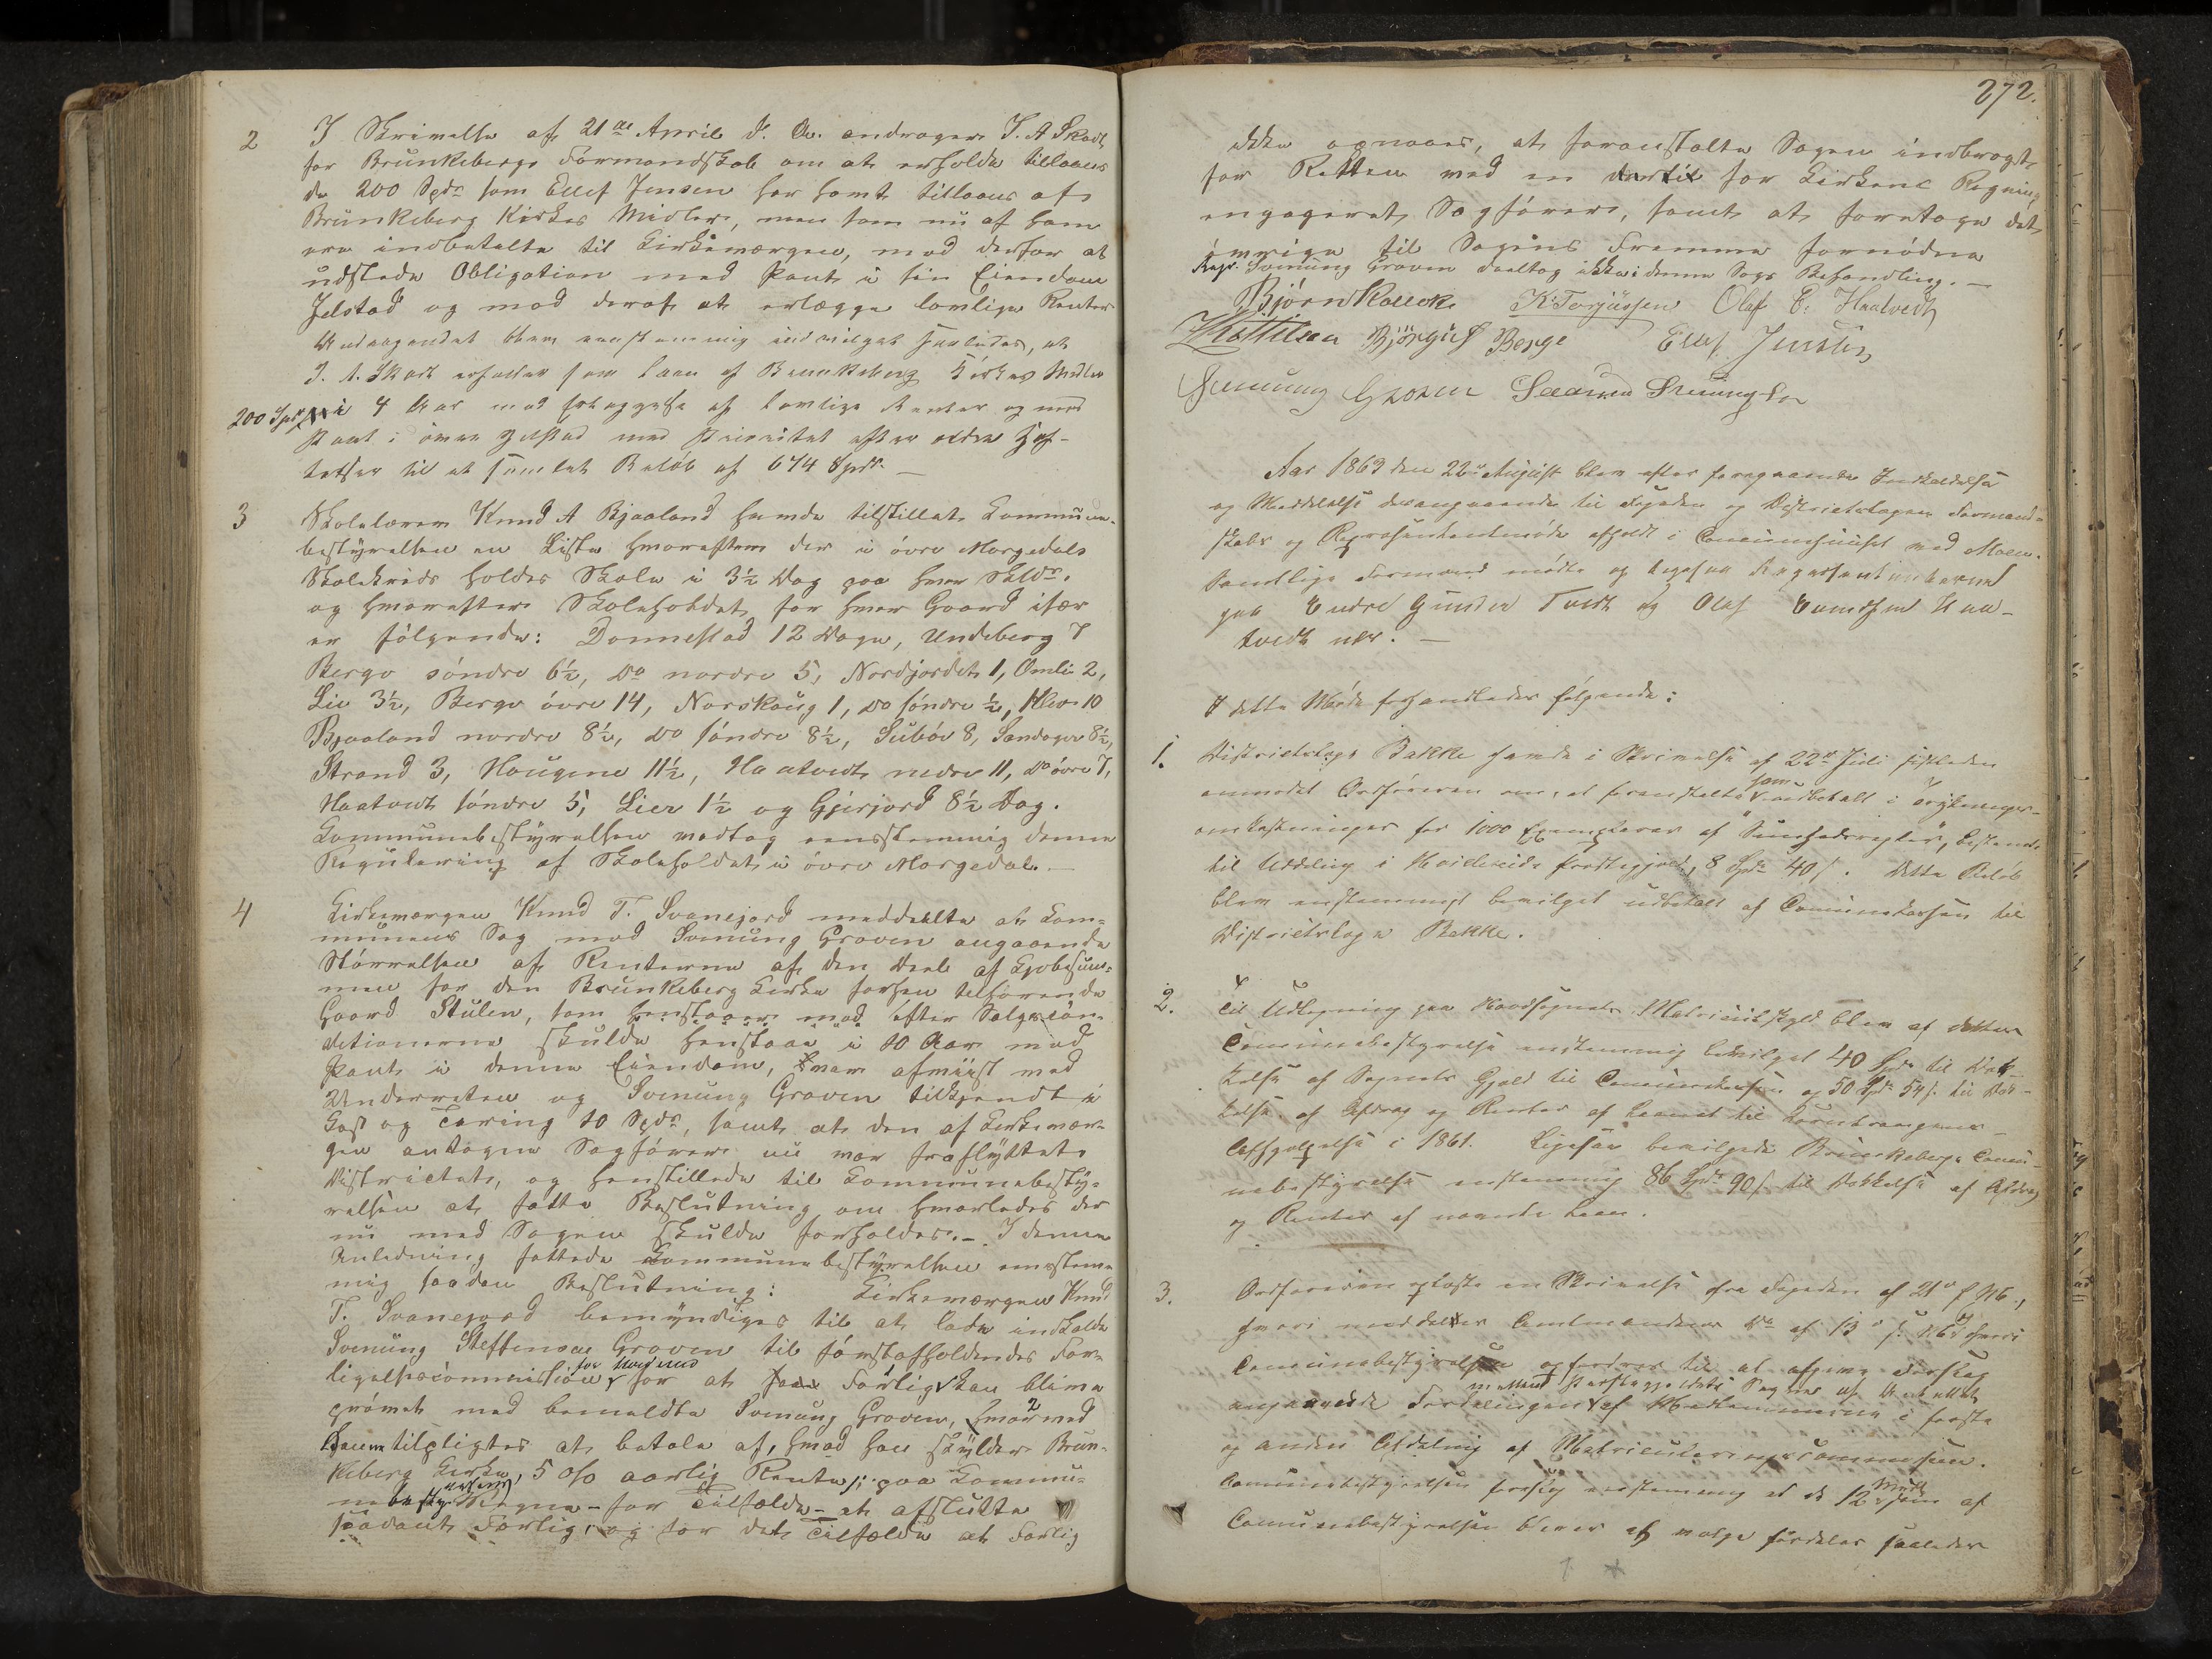 2 I Skrivelse af 21de April d. A. andrager J. A. Skott
for Brunkebergs Formandskab om at erholde tillaans
de 200 Spdr som Ellef Jensen har havt tillaans af
Brunkeberg Kirkes Midler, men som nu af ham
ere indbetalte til Kirkeværgen, mod derfor at
udstede Obligation med Pant i sin Eiendom
Jelstad og mod deraf at erlægge lovlige Renter
Andragendet blev eenstemmig indvilget saaledes, at
J. A. Skott erholder som Laan af Brunkeberg Kirkes Midler
200 Spdr i 4 Aar mod Erlæggelse af lovlige Renter og mod
Pant i övre Jelstad med Prioritet efter ældre Hef-
telser til et samlet Belöb af 674 Spdr. —
3 Skolelærer Knud A Bjaaland havde tilstillet Commune-
bestÿrelsen en Liste hvorefter der i övre Morgedals
Skolekreds holdes Skole i 3½ Dag paa hver Skldr.
og hvorefter Skoleholdet for hver Gaard især
er fölgende: Donnestad 12 Dage, Undeberg 7
Berge söndre 6½, Do nordre 5, Nordjordet 1, Omlie 2,
Lie 3½, Berge övre 14, Norskoug 1, Do söndre ½, Kleve 10
Bjaaland nordre 8½, Do söndre 8½, Suböe 8, Sandager 8½,
Strand 3, Hougene 11½, Haatvedt nedre 11, Do övre 7,
Haatvedt söndre 5, Lier 1½ og Gjerjord 8½ Dag.
Communebestÿrelsen vedtog eenstemmig denne
Regulering af Skoleholdet i övre Morgedal. —
4 Kirkeværgen Knud T. Svanejord meddeelte at Com-
munens Sag mod Svenung Groven angaaende
Störrelsen af Renterne af den Deel af Kjöbesum-
men for den Brunkeberg Kirke forhen tilhörende
Gaard Stulen, som henstaaer med efter Salgscon-
ditionerne skulde henstaae i 10 Aar mod
Pant i denne Eiendom, var afviist ved
Underretten og Svenung Groven tilkjendt i
Kost og Tæring 10 Spdr, samt at den af Kirkevær-
gen antagne Sagförer nu var fraflÿttet
Districtet, og henstillede til Communebestÿ-
relsen at fatte Beslutning om hvorledes der
nu med Sagen skulde forholdes. – I denne
Anledning fattede Communebestÿrelsen eenstem-
mig saadan Beslutning: Kirkeværgen Knud
T. Svanejord bemÿndiges til at lade indkalde
Svenung Steffensen Groven til förstafholdendes For-
ligelsescommission for Hvideseid for at Forlig kan blive
prövet med bemeldte Svenung Groven, hvorved
Hann tilpligtes at betale af, hvad han skÿlder Brun-
keberg Kirke, 5 o/o aarlig Rente, paa Commu-
nebestyrelsens Vegne – for Tilfælde – at afslutte
saadant Forlig, og for det Tilfælde at Forlig
272.
ikke opnaaes, at foranstalte Sagen indbragt
for Retten ved en dertil for Kirkens Regning
engageret Sagförer, samt at foretage det
övrige til Sagens Fremme fornödne
Repr. Svenung Groven deeltog ikke i denne Sags Behandling. —
Björn Kolleck K. Torjussen Olaf E. Haatvedt
Kittilsen Björgulf Berge Ellef Jensen
Svenung Groven Saamund Svenungsen
Aar 1863 den 22de August blev efter foregaaende Indkaldelse
og Meddelelse desangaaende til Fogden og Districtslægen Formand-
skabs og Repræsentantmöde afholdt i Communehuuset ved Moen.
Samtlige Formænd mödte og ligesaa Repræsentanterne
paa Endre Gunder Tvedt og Olaf Evindsen Haa-
tvedt nær. —
I dette Möde forhandledes fölgende:
1. Districtslæge Bakke havde i Skrivelse af 22de Juli sidstleden
anmodet Ordföreren om, at foranstalte som udbetalt i Trÿknings-
omkostninger for 1000 Exemplarer af "Sundhedsregler", bestemt
til Uddeling i Hvideseids Præstegjæld, 8 Spdr 40 s. Dette Belöb
blev enstemmigt bevilget udbetalt af Communekassen til
Districtslæge Bakke.
2. Til Udligning paa Hovedsognets Matriculskyld blev af dettes
Communebestyrelse enstemmig bevilget 40 Spdr til Dæk-
kelse af Sognets Gjæld til Communekassen og 50 Spdr 54 s. til Dæk-
kelse af Afdrag og Renter af Laanet til Korntrangens
Afhjælpelse i 1861. Ligesaa bevilgede Brunkebergs Commu-
nebestyrelse enstemmig 86 Spdr 90 s til Dækkelse af Afdrag
og Renter af nævnte Laan.
3. Ordföreren oplæste en Skrivelse fra Fogden af 21de f. M.,
hvori meddeles Amtmandens Do af 13de s. M. hvori
Communebestyrelsen opfordres til at afgive Forslag
angaaende Fordelingen mellem Præstegjældets Sogne af Antallet af Medlemmerne i förste
og anden Afdeling af Matriculeringscommissionen.
Communebestyrelsen foreslog enstemmig at de 12 Mdl som af
Communebestyrelsen bliver at vælge fordeles saaledes